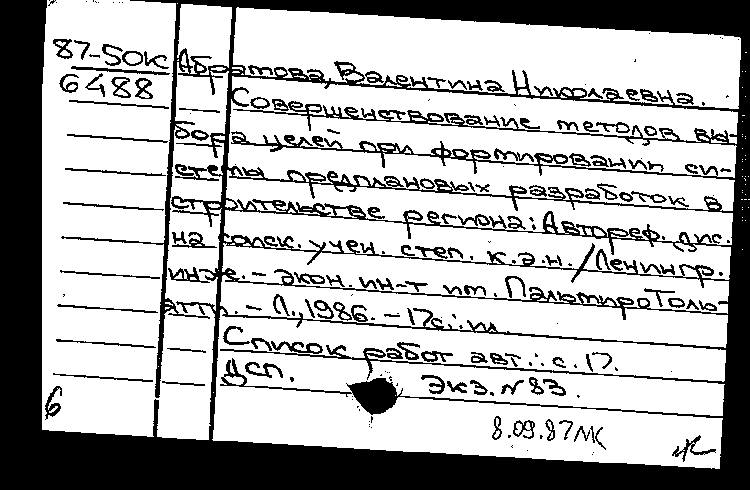 87-50к Абрамова, Валентина Николаевна.
6488 Совершенствование методов вы-
бора целей при формировании си-
стемы предплановых разработок в
строительстве региона: Автореф. дис.
на соиск. учен. степ. к.э.н. / Ленингр.
инж.-экон. ин-т им. Пальмиро Толь-
ятти. - Л., 1986. - 17с.: ил.
Список работ авт.: с. 17.
ДСП. Экз. №83.
6
8.09.87МК